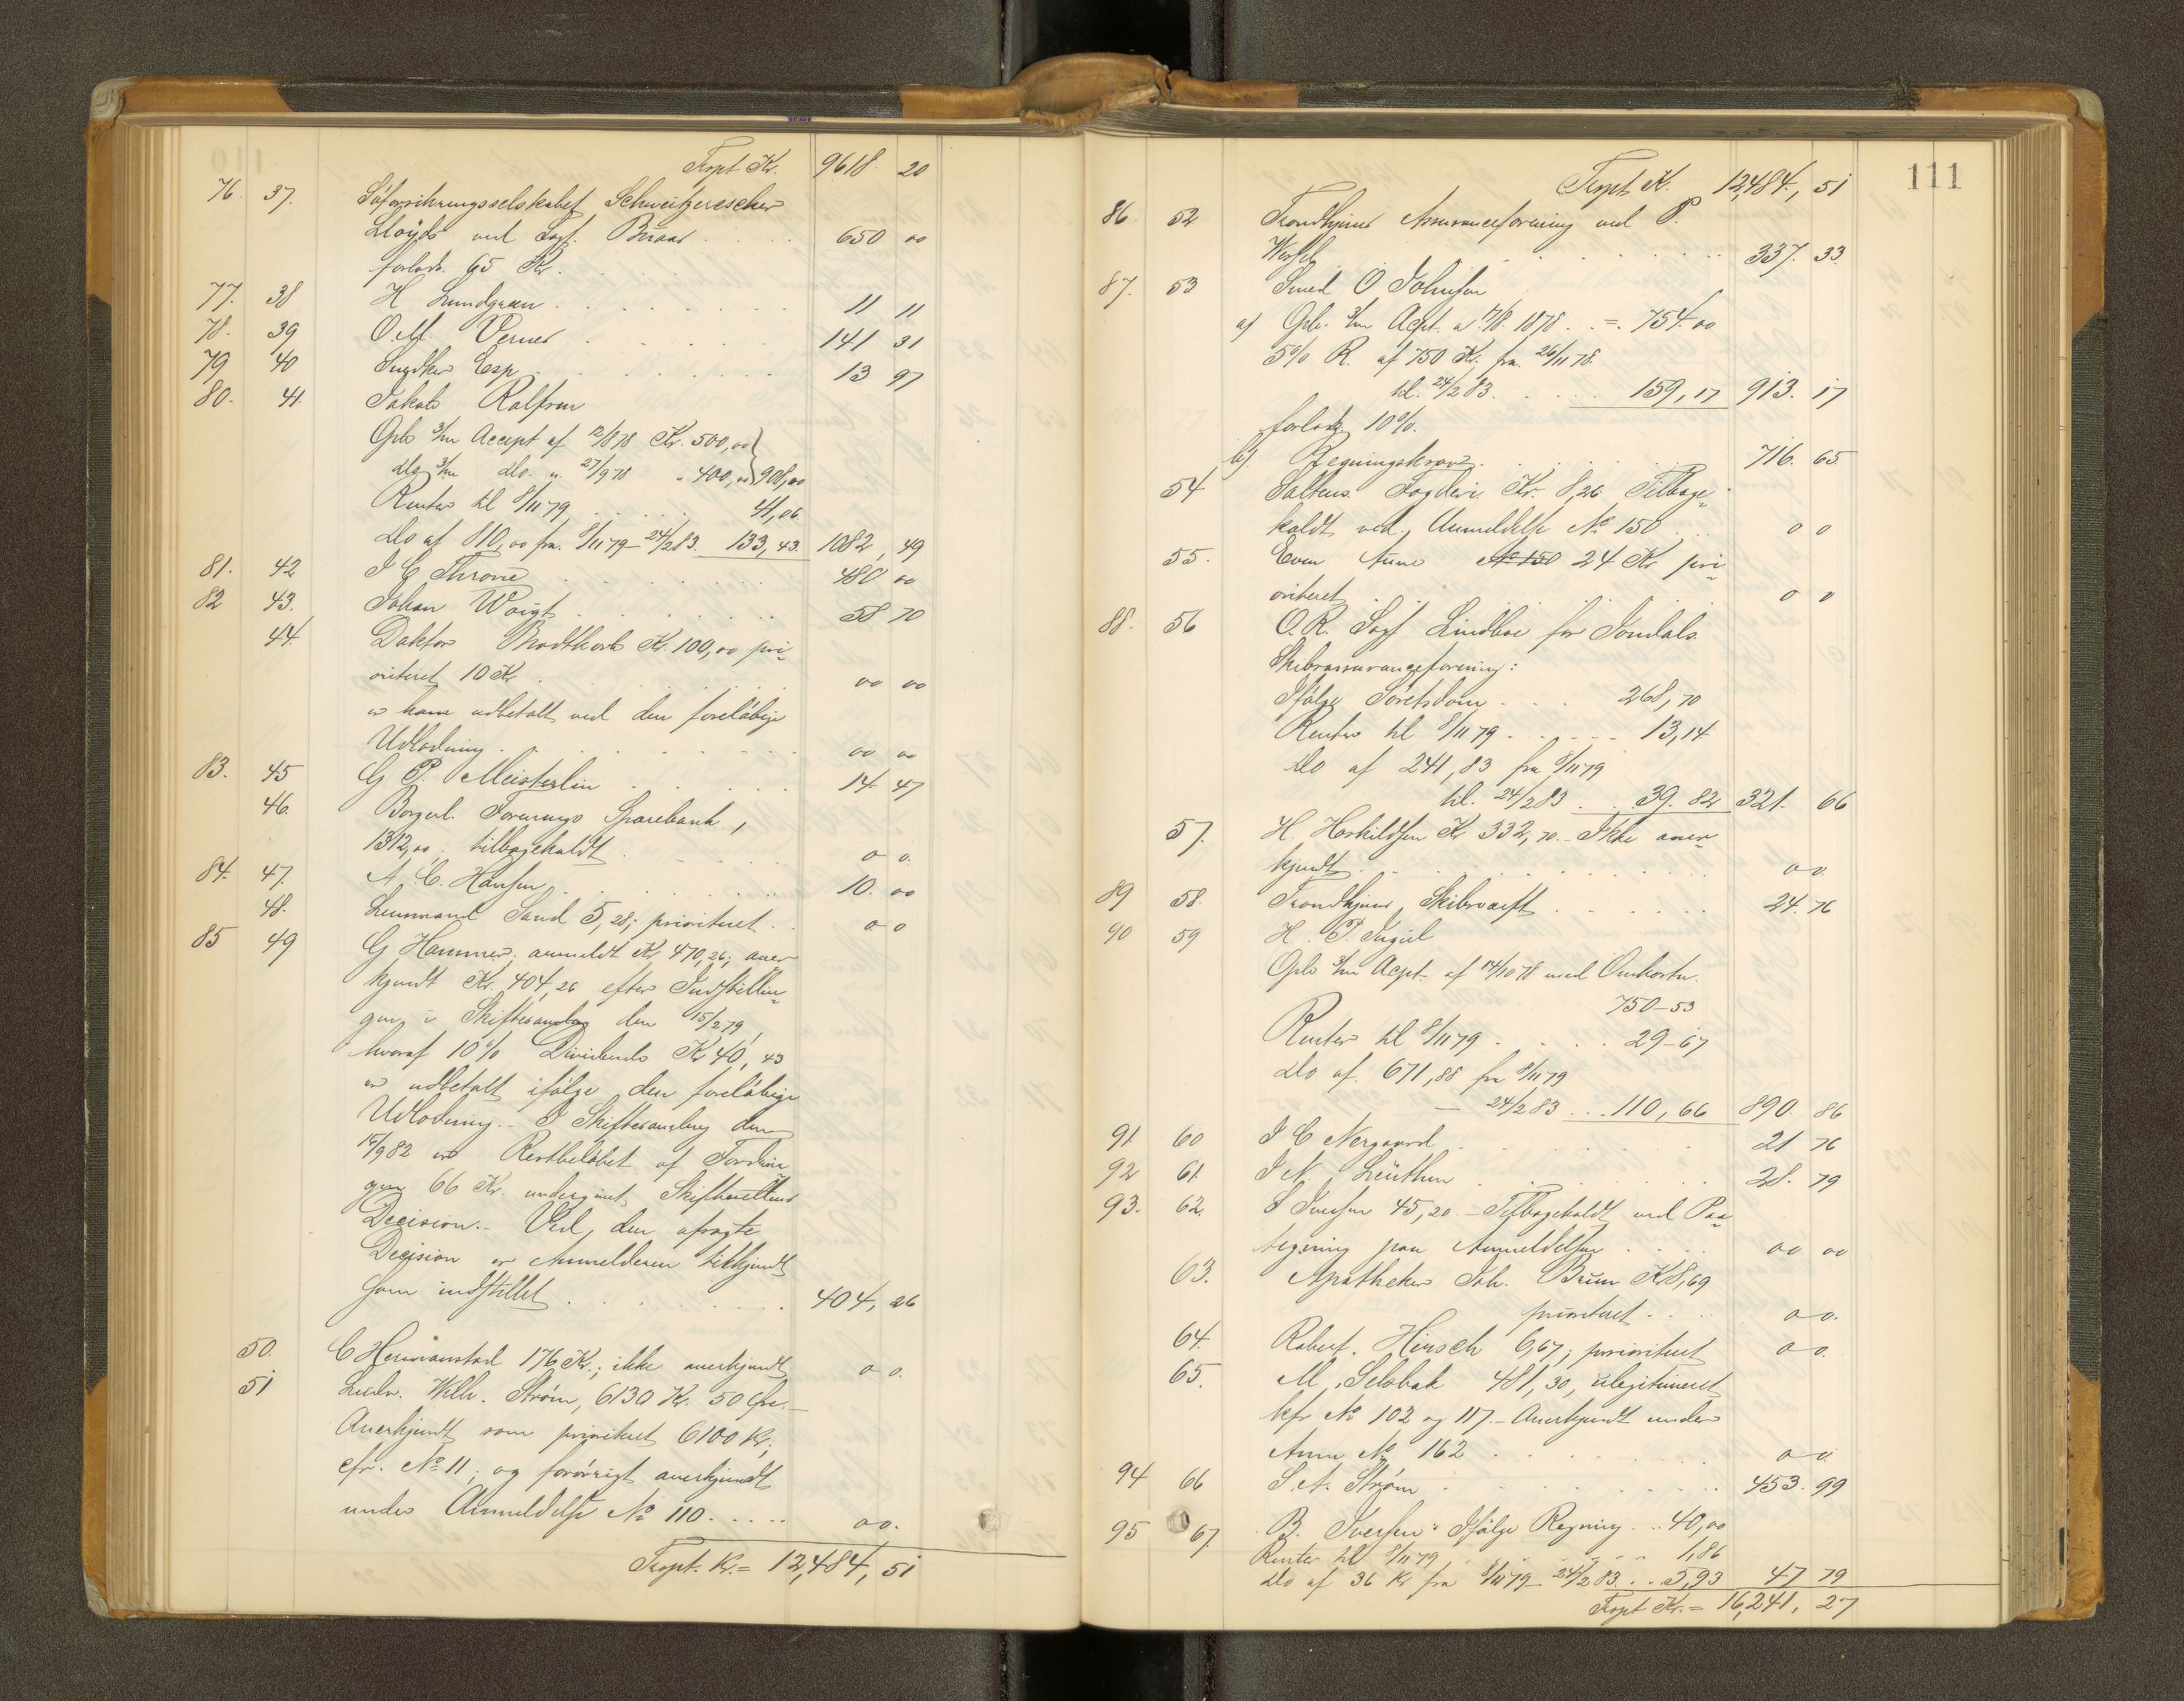 Trspt Kr. 9618. 20
76. 37. Söforsikringsselskabet Schweitzerescher
Lloyds ved Sagf. Braas . . . 650 00
forlods. 65 Kr.
77. 38 H Lundgreen . . . 11 11
78. 39 O. M. Verner . . . 141 31
79 40 Snedker Esp . . . 13 97
80. 41. Jakob Rolfsen
Gjb 3/m Accept af 12/8 78 Kr. 500,00
do 3/m do. " 27/9 78 " 400,00 } 908,00
Renter til 8/11 79 . . . 41,06
do af 810,00 fra 8/11 79 – 24/2 83. 133,43. 1082, 49
81. 42 I C Throne . . . 480 00
82 43. Johan Woigt . . . 58 70
44. Doktor Brodtkorb Kr. 100,00 pri-
oriteret 10 Kr . . . 00 00
er ham udbetalt ved den foreløbige
Udlodning . . . 00 00
83. 45 G P. Meisterlin . . . 14 47
46. Borgerl. Forenings Sparebank,
1312,00. tilbagekaldt . . . 0 0.
84. 47. A. C. Hansen . . . 10. 00
48. Lensmand Sand 5,28; prioriteret . . 0 0
85 49 G Hammer, anmeldt Kr. 470,26; aner-
kjendt Kr. 404,26 efter Indstillin-
gen i Skiftesamling den 15/2 79,
hvoraf 10 % Dividende Kr 40,43
er udbetalt ifølge den foreløbige
Udlodning. – I Skiftesamling den
15/9 82 er Restbeløbet af Fordrin
gen 66 Kr. undergivet Skifterettens
Decision. – Ved den afsagte
Decision er Anmelderen tilkjendt
som indstillet . . . 404, 26
50. C Hermanstad 176 Kr.; ikke anerkjendt 0 0.
51 Ludv. Wilh. Strøm, 6130 Kr. 50 Øre. –
Anerkjendt som prioriteret 6100 Kr;
cfr. No 11; og forøvrigt anerkjendt
under Anmeldelse No 110. . . . 00.
Trspt. Kr. = 12,484, 51
111
Trspt Kr. 12,484., 51
86. 52 Trondhjems Assuranceforening ved P.
. . . 337. 33.
87. 53 Smed O Johnsen
a) Gjb. 3/m Acpt. a 17/8. 1878 . . = 754.00
5 % R. af 750 Kr. fra 26/11 78.
til 24/2 83. . . . 159,17 913. 17
forlods 10 %.
b). Regningskrav . . . 716. 65
54 Saltens Fogderi Kr. 8,26 Tilbage-
kaldt ved Anmeldelse No 150 . . . 0 0
55. Even Aune No 150 24 Kr pri-
oriteret . . . 0 0
88. 56 O. R. Sagf Lindboe for Jondals
Skibsassuranceforening:
Ifølge Søretsdom . . . 268,70
Renter til 8/11 79 . . . 13,14
do af 241,83 fra 8/11 79
til. 24/2 83 . . 39. 82 321. 66
57. H. Hoskildsen Kr 332,70. – Ikke aner-
kjendt . . . 0 0.
89 58. Trondhjems Skibsværft . . . 24. 76
90 59 H. P. Ingul
Gjb 3/m Acpt. af 14/10 78 med Omkostn.
750 – 53
Renter til 8/11 79 . . . 29 – 67
do af. 671,88 fra 8/11 79
– 24/2 83 . . . 110,66 890. 86
91. 60 I C Nergaard . . . 21 76
92 61. I N Leuthen . . . 28. 79
93. 62. I Iversen 45,20. – Tilbagekaldt ved Paa-
tegning paa Anmeldelsen . . . 00 00
63. Apotheker Joh. Bruun Kr 8,69
prioriteret . . . 0 0.
64. Robert. Hirsch 6,67; prioriteret 0 0.
65. M. Selsbak 481,30, ulegitimeret
kfr No 102 og 117. – Anerkjendt under
Anm No 162 . . . 0 0.
94 66 S. A. Strøm . . . 453. 99
95 67. B. Iversen: Ifølge Regning . . 40,00
Renter til 8/11 79 . . . 1,86
do af 36 Kr fra 8/11 79 – 24/2 83 . . . 5,93 47 79
Trspt Kr. = 16,241. 27